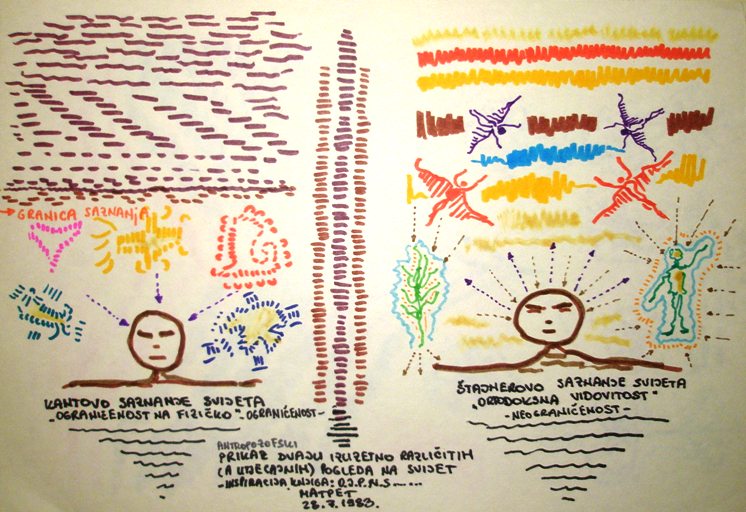 GRANICA SAZNANJA
KANTOVO SAZNANJE SVIJETA
-OGRANIČENOST NA FIZIČKO"-OGRANIČENOST-
ŠTAJNEROVO SAZNANJE SVIJETA
"ORTODOKSNA VIDOVITOST"
-NEOGRANIČENOST-
ANTROPOZOFSKI
PRIKAZ DVAJU IZUZETNO RAZLIČITIH
(A UTJECAJNIH) POGLEDA NA SVIJET
-INSPIRACIJA KNJIGA:
MATPET
28.7.1983.